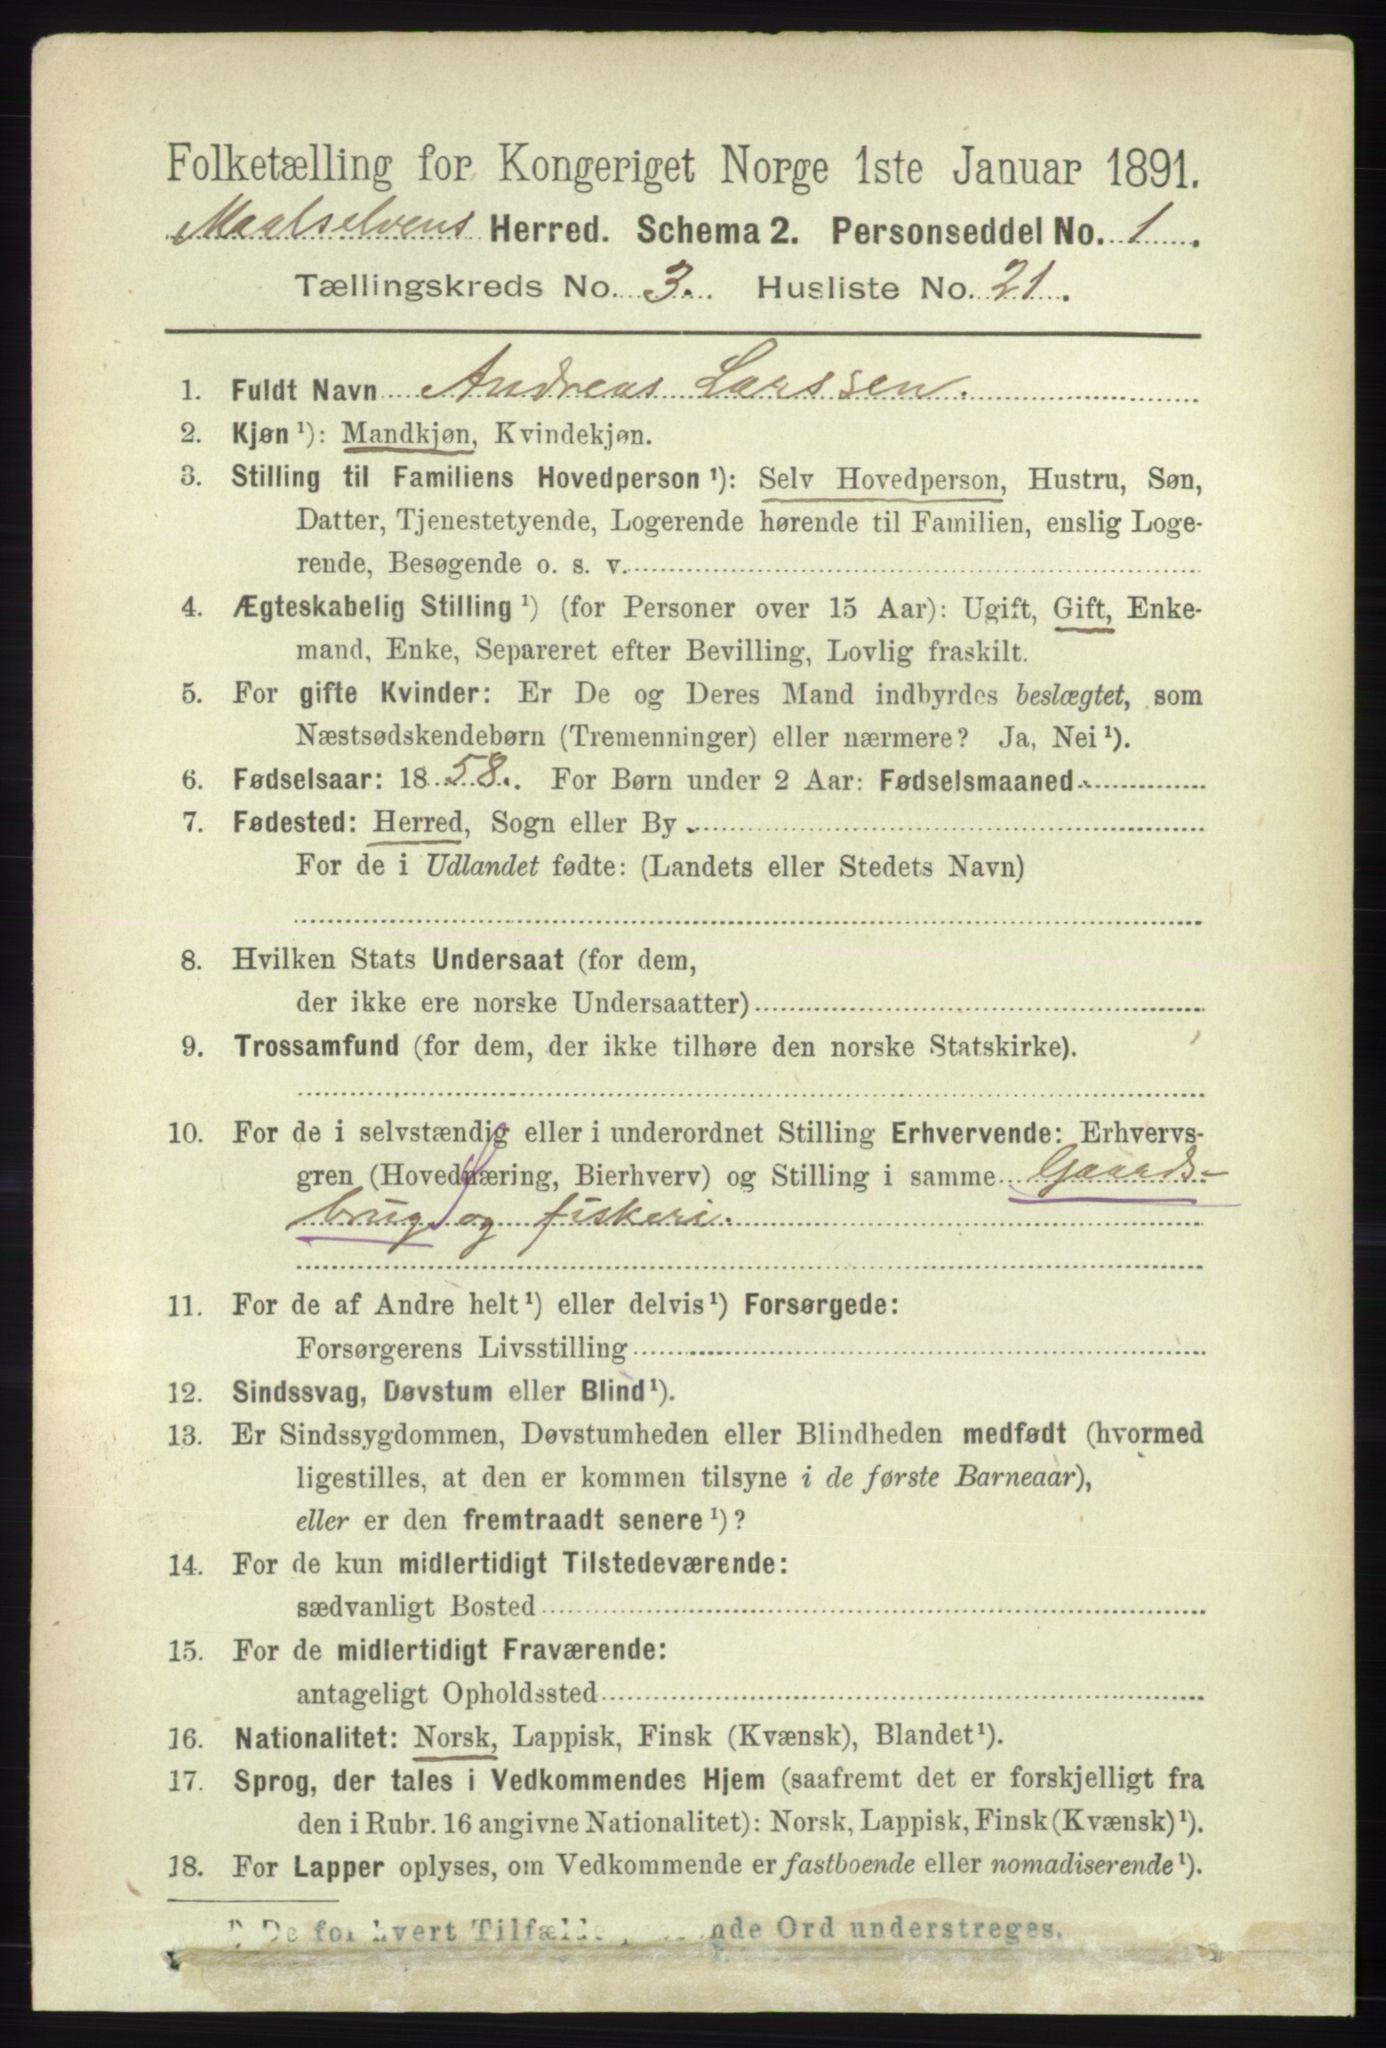 Folketælling for Kongeriget Norge 1ste Januar 1891.
Maalselvens Herred. Schema 2. Personseddel No. 1.
Tællingskreds No. 3. Husliste No. 21.
1. Fuldt Navn Andreas Larssen.
2. Kjøn ¹): Mandkjøn, Kvindekjøn.
3. Stilling til Familiens Hovedperson ¹): Selv Hovedperson, Hustru, Søn,
Datter, Tjenestetyende, Logerende hørende til Familien, enslig Loge-
rende, Besøgende o. s. v.
4. Ægteskabelig Stilling ¹) (for Personer over 15 Aar): Ugift, Gift, Enke-
mand, Enke, Separeret efter Bevilling, Lovlig fraskilt.
5. For gifte Kvinder: Er De og Deres Mand indbyrdes beslægtet, som
Næstsødskendebørn (Tremenninger) eller nærmere? Ja, Nei ¹).
6. Fødselsaar: 1858. For Børn under 2 Aar: Fødselsmaaned
7. Fødested: Herred, Sogn eller By
For de i Udlandet fødte: (Landets eller Stedets Navn)
8. Hvilken Stats Undersaat (for dem,
der ikke ere norske Undersaatter)
9. Trossamfund (for dem, der ikke tilhøre den norske Statskirke).
10. For de i selvstændig eller i underordnet Stilling Erhvervende: Erhvervs-
gren (Hovednæring, Bierhverv) og Stilling i samme Gaards-
brug og fiskeri.
11. For de af Andre helt ¹) eller delvis ¹) Forsørgede:
Forsørgerens Livsstilling
12. Sindssvag, Døvstum eller Blind ¹).
13. Er Sindssygdommen, Døvstumheden eller Blindheden medfødt (hvormed
ligestilles, at den er kommen tilsyne i de første Barneaar),
eller er den fremtraadt senere ¹)?
14. For de kun midlertidigt Tilstedeværende:
sædvanligt Bosted
15. For de midlertidigt Fraværende:
antageligt Opholdssted
16. Nationalitet: Norsk, Lappisk, Finsk (Kvænsk), Blandet ¹).
17. Sprog, der tales i Vedkommendes Hjem (saafremt det er forskjelligt fra
den i Rubr. 16 angivne Nationalitet): Norsk, Lappisk, Finsk (Kvænsk) ¹).
18. For Lapper oplyses, om Vedkommende er fastboende eller nomadiserende ¹).
¹) De for hvert Tilfælde Ord understreges.